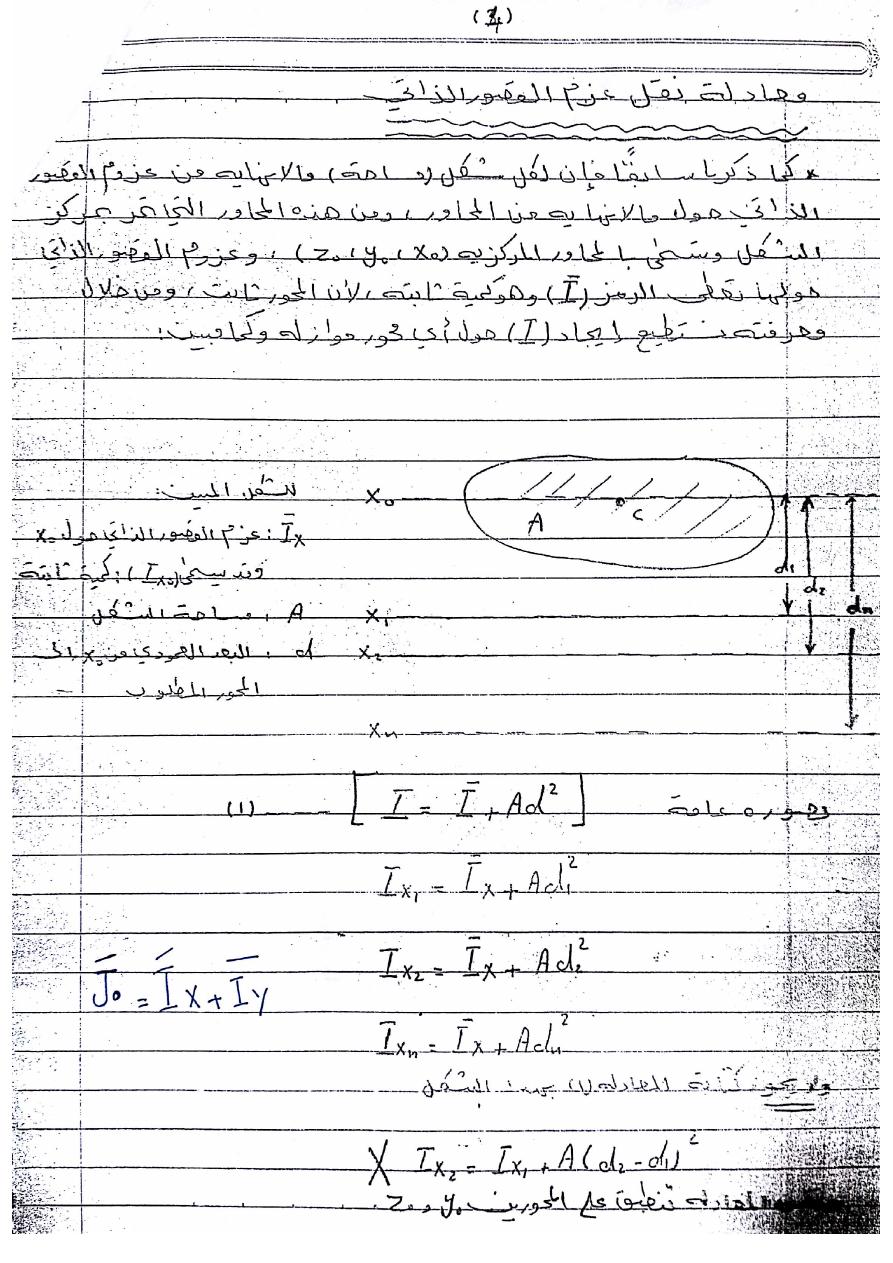 (4)
معادلة نقل عزم القصور الذاتي
* كما ذكرنا سابقًا فإن لكل شكل (مساحة) مالانهايه من عزوم القصور
الذاتي حول مالانهايه من المحاور، ومن هذه المحاور التي تمر بمركز
الشكل وتسمى بالمحاور المركزيه (x₀، y₀، z₀)، وعزوم القصور الذاتي
حولها تعطى الرمز (Ī) وهو كمية ثابته، لأن المحور ثابت، ومن خلال
معرفته نستطيع إيجاد (I) حول أي محور موازله وكما مبين:
للشكل المبين:
Īx : عزم القصور الذاتي حول x₀
وقد يسمى (Ix₀) : كمية ثابتة
A : مساحة الشكل
d : البعد العمودي من x₀ الى
المحور المطلوب
x₀
A
c
d₁
d₂
dn
x₁
x₂
xn
بصوره عامة [ I = Ī + Ad² ] (1)
Ix₁ = Īx + Ad₁²
Ix₂ = Īx + Ad₂²
J̄₀ = Īx + Īy
Ixn = Īx + Adn²
ولا يجوز كتابة المعادله (1) بهذا الشكل
X Ix₂ = Ix₁ + A(d₂ - d₁)²
المعادله تنطبق على المحورين y₀ و z₀